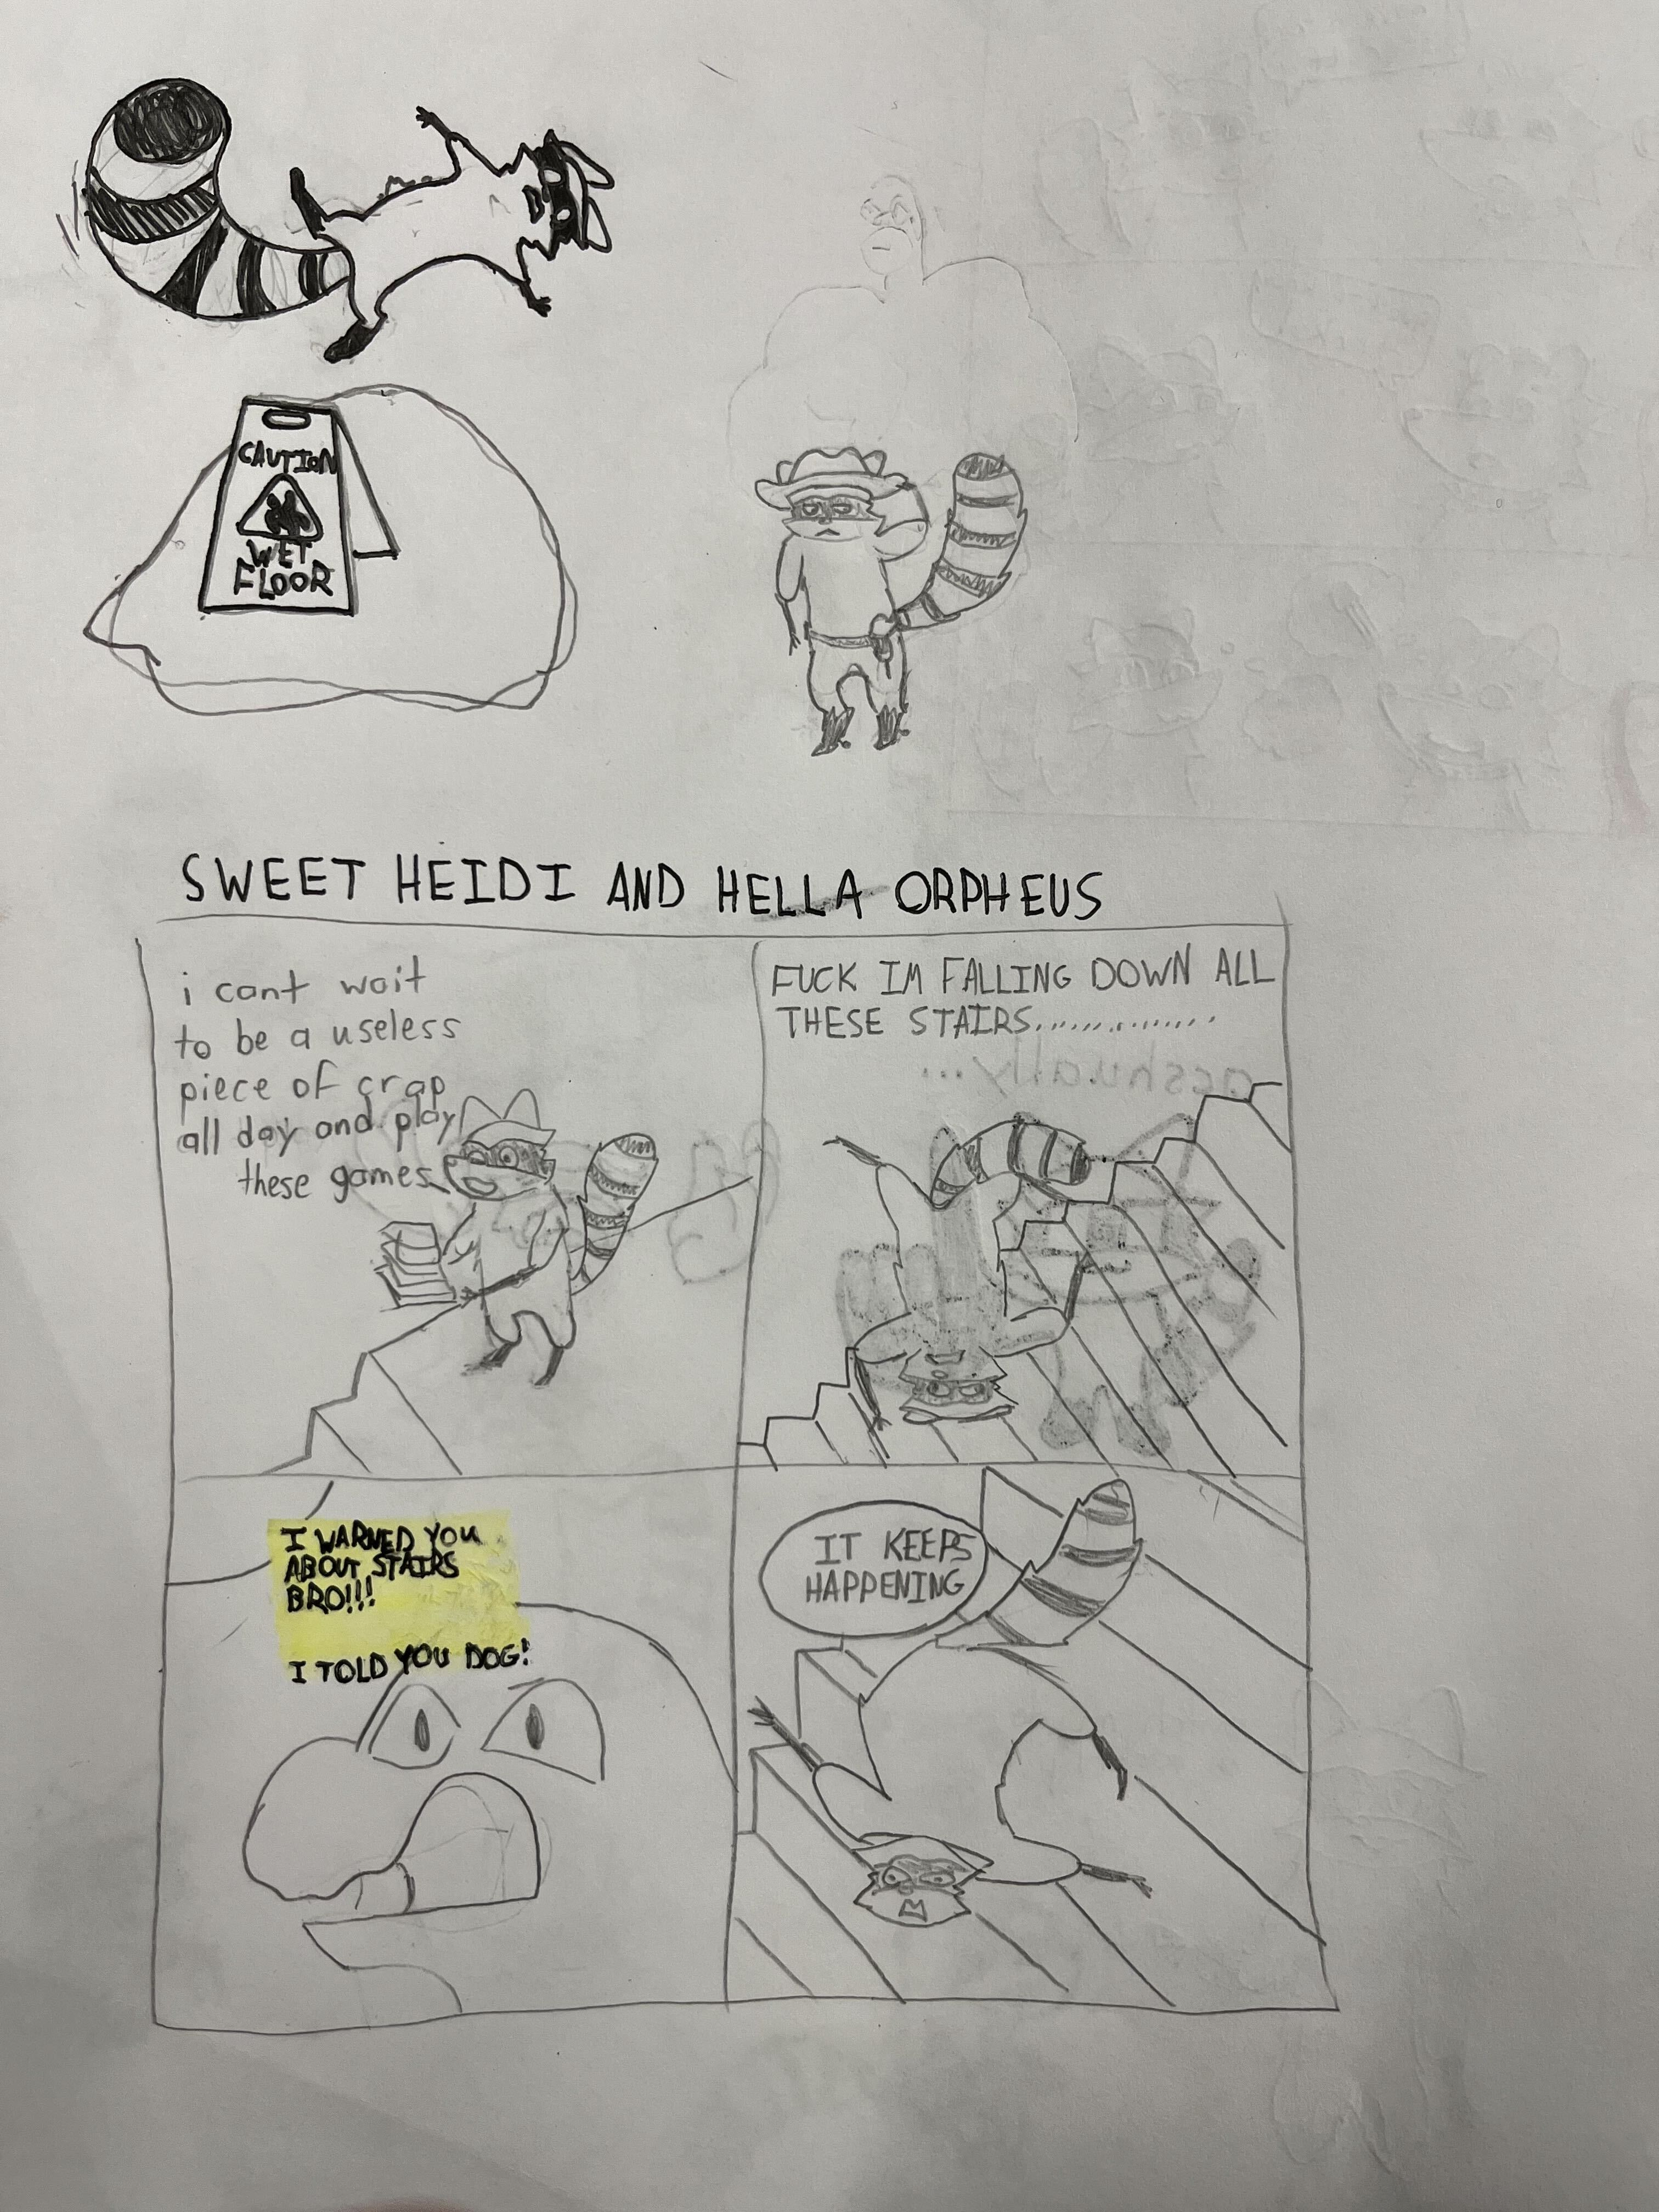 CAUTION
WET
FLOOR
SWEET HEIDI AND HELLA ORPHEUS
i cant wait
to be a useless
piece of crap
all day and play
these games
FUCK IM FALLING DOWN ALL
THESE STAIRS...............
acshually...
I WARNED YOU
ABOUT STAIRS
BRO!!!
I TOLD YOU DOG!
IT KEEPS
HAPPENING